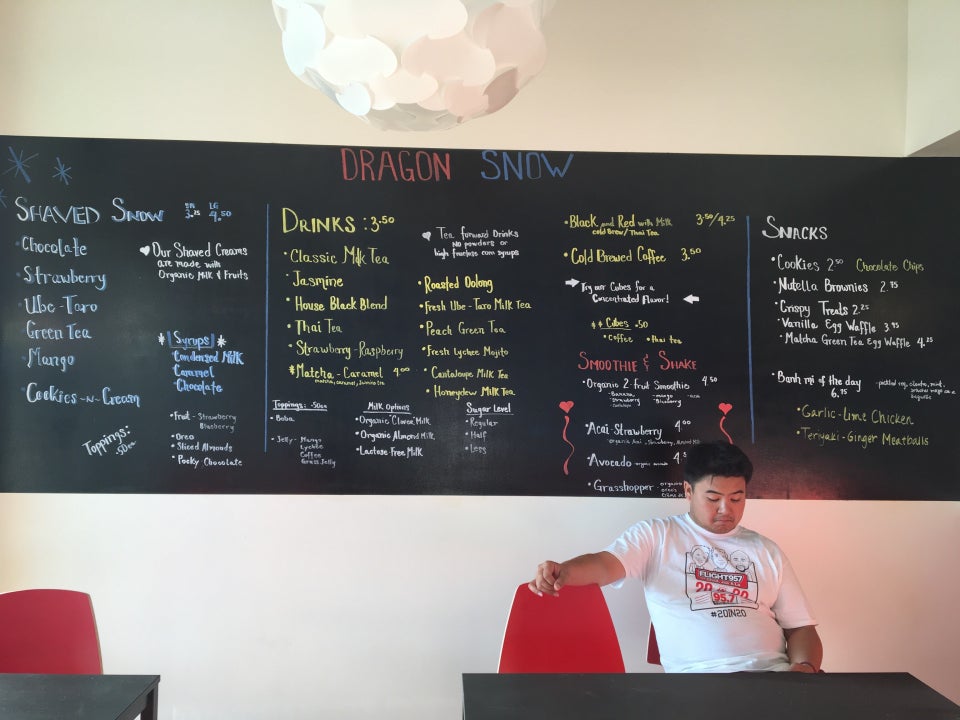 DRAGON SNOW
SHAVED SNOW
SM 3.25
LG 4.50
Chocolate
Strawberry
Ube-Taro
Green Tea
Mango
Cookies-N-Cream
Our Shaved Creams
are made with
Organic Milk & Fruits
Syrups
Condensed Milk
Caramel
Chocolate
Toppings:
.50ea
Fruit - Strawberry
Blueberry
Oreo
Sliced Almonds
Pocky Chocolate
DRINKS: 3.50
Classic Milk Tea
Jasmine
House Black Blend
Thai Tea
Strawberry-Raspberry
Matcha-Caramel 4.00
Tea forward Drinks
NO powders or
high fructose corn syrups
Roasted Oolong
Fresh Ube-Taro Milk Tea
Peach Green Tea
Fresh Lychee Mojito
Cantaloupe Milk Tea
Honeydew Milk Tea
Toppings: .50ea
Boba
Jelly - Mango
Lychee
Coffee
Grass Jelly
Milk Options
Organic Clover Milk
Organic Almond Milk
Lactose-Free Milk
Sugar Level
Regular
Half
Less
Black and Red with Milk 3.50/4.25
cold Brew/Thai Tea
Cold Brewed Coffee 3.50
Try our Cubes for a
Concentrated Flavor!
Cubes .50
Coffee thai tea
SMOOTHIE & SHAKE
Organic 2-Fruit Smoothie 4.50
Banana
strawberry
mango
Blueberry
Acai-Strawberry 4.00
organic Acai, Strawberry, Almond Milk
Avocado - organic avocado
Grasshopper -
SNACKS
Cookies 2.50 Chocolate Chips
Nutella Brownies 2.75
Crispy Treats 2.25
Vanilla Egg Waffle 3.95
Matcha Green Tea Egg Waffle 4.25
Banh mi of the day
6.75
Garlic-Lime Chicken
Teriyaki-Ginger Meatballs
FLIGHT957
95.7
#20IN20